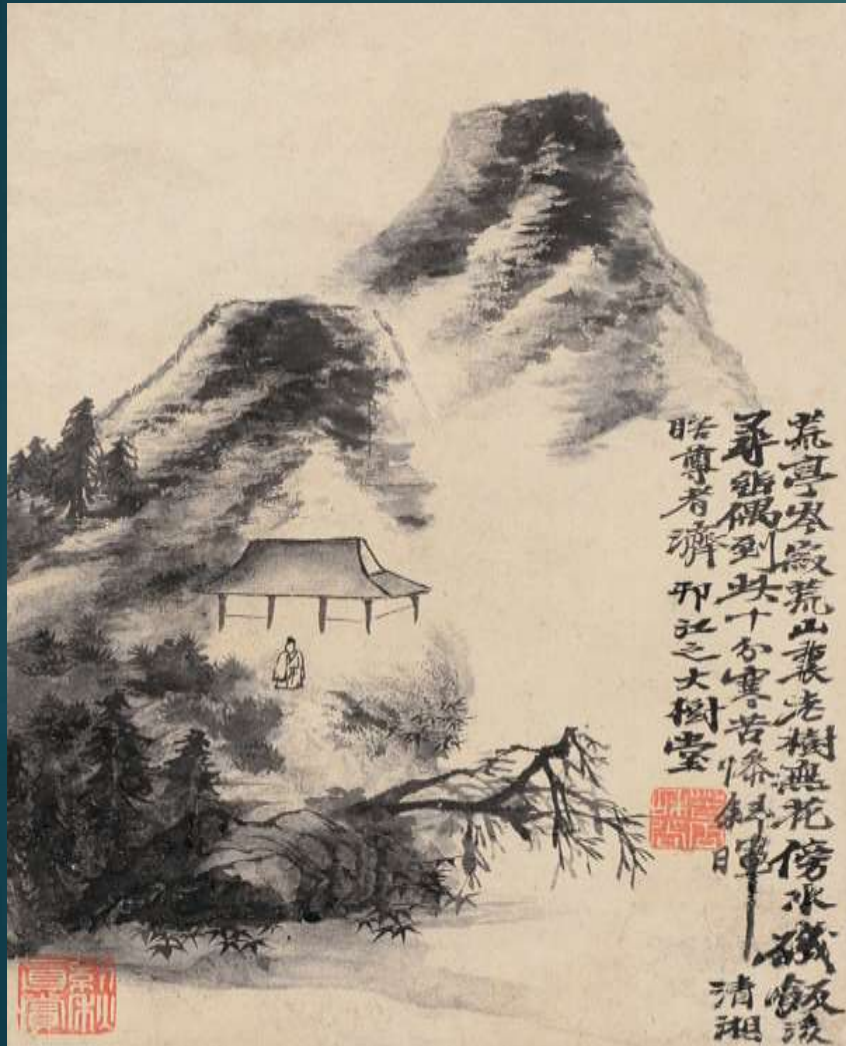 荒亭岑寂荒山裏老樹無花傍水磯飯後
尋幽偶到此十分寒苦惨斜暉 清湘
瞎尊者濟 邗江之大樹堂